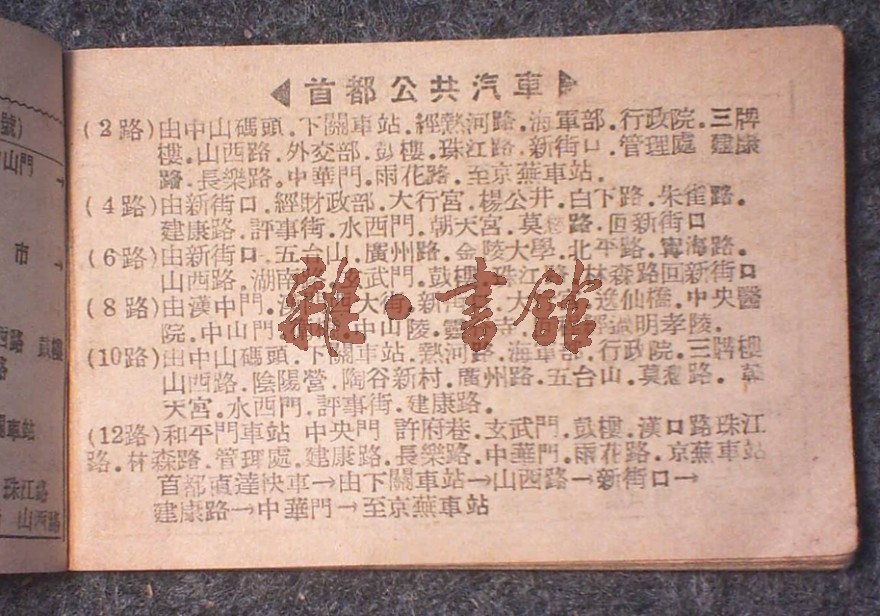 號)
山門
市
西路 鼓樓
路
車站
珠江路
山西路
首都公共汽車
(2路)由中山碼頭.下關車站.經熱河路.海軍部.行政院.三牌
樓.山西路.外交部.鼓樓.珠江路.新街口.管理處 建康
路.長樂路。中華門.雨花路.至京蕪車站.
(4路)由新街口.經財政部.大行宮.楊公井.白下路.朱雀路.
建康路.評事街.水西門.朝天宮.莫愁路.回新街口
(6路)由新街口.五台山.廣州路.金陵大學.北平路.寗海路.
山西路.湖南 玄武門.鼓樓.珠江路.林森路回新街口
(8路)由漢中門. 大街.新 大 逸仙橋.中央醫
院.中山門 中山陵.靈 明孝陵.
(10路)由中山碼頭.下關車站.熱河路.海軍部.行政院.三牌樓
山西路.陰陽營.陶谷新村.廣州路.五台山.莫愁路.
天宮.水西門.評事街.建康路.
(12路)和平門車站 中央門 許府巷.玄武門.鼓樓.漢口路珠江
路.林森路.管理處.建康路.長樂路.中華門.雨花路.京蕪車站
首都直達快車→由下關車站→山西路→新街口→
建康路→中華門→至京蕪車站
雜·書館